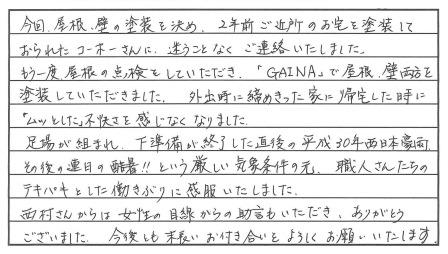 今回、屋根、壁の塗装を決め、2年前ご近所のお宅を塗装して
おられたコーホーさんに、迷うことなく ご連絡いたしました。
もう一度 屋根の点検をしていただき、「GAINA」で屋根、壁両方を
塗装していただきました。 外出時に締めきった家に帰宅した時に
「ムッとした」不快さを感じなくなりました。
足場が組まれ、下準備が終了した直後の平成30年西日本豪雨、
その後の連日の酷暑!! という厳しい気象条件の元、職人さんたちの
テキパキとした働きぶりに感服いたしました。
西村さんからは 女性の目線からの助言もいただき、ありがとう
ございました。 今後とも末長いお付き合いとよろしくお願いいたします。